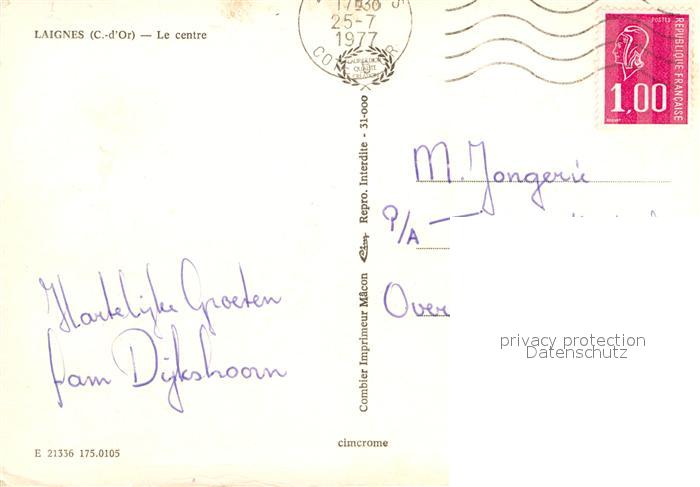 LAIGNES (C.-d'Or) — Le centre
25-7
1977
POSTES
RÉPUBLIQUE FRANÇAISE
1,00
M. Jongerie
P/A
Over
Hartelijke Groeten
fam Dijkshoorn
Combier Imprimeur Mâcon
Repro. Interdite - 31-000
privacy protection
Datenschutz
cimcrome
E 21336 175.0105